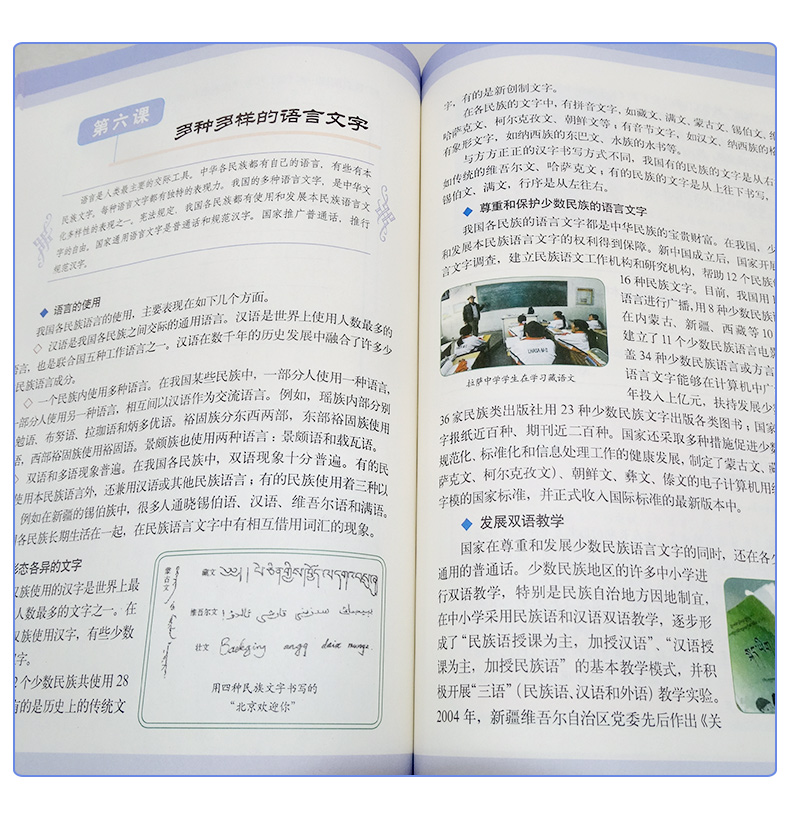 第六课
多种多样的语言文字
语言是人类最主要的交际工具。中华各民族都有自己的语言，有些有本
民族文字。每种语言文字都有独特的表现力。我国的多种语言文字，是中华文
化多样性的表现之一。宪法规定，我国各民族都有使用和发展本民族语言文
字的自由。国家通用语言文字是普通话和规范汉字。国家推广普通话，推行
规范汉字。
◆ 语言的使用
我国各民族语言的使用，主要表现在如下几个方面。
◇ 汉语是我国各民族之间交际的通用语言。汉语是世界上使用人数最多的
语言，也是联合国五种工作语言之一。汉语在数千年的历史发展中融合了许多少
民族语言成分。
◇ 一个民族内使用多种语言。在我国某些民族中，一部分人使用一种语言，
一部分人使用另一种语言，相互间以汉语作为交流语言。例如，瑶族内部分别
勉语、布努语、拉珈语和炳多优语。裕固族分东西两部，东部裕固族使用
语，西部裕固族使用裕固语。景颇族也使用两种语言：景颇语和载瓦语。
◇ 双语和多语现象普遍。在我国各民族中，双语现象十分普遍。有的民
使用本民族语言外，还兼用汉语或其他民族语言；有的民族使用着三种以
例如在新疆的锡伯族中，很多人通晓锡伯语、汉语、维吾尔语和满语。
各民族长期生活在一起，在民族语言文字中有相互借用词汇的现象。
形态各异的文字
汉族使用的汉字是世界上最
人数最多的文字之一。在
汉族使用汉字，有些少数
字。
2个少数民族共使用 28
有的是历史上的传统文
蒙古文
藏文
维吾尔文
壮文
用四种民族文字书写的
“北京欢迎你”
字，有的是新创制文字。
在各民族的文字中，有拼音文字，如藏文、满文、蒙古文、锡伯文、维
哈萨克文、柯尔克孜文、朝鲜文等；有音节文字，如汉文、纳西族的
有象形文字，如纳西族的东巴文、水族的水书等。
与方方正正的汉字书写方式不同，我国有的民族的文字是从右
如传统的维吾尔文、哈萨克文；有的民族的文字是从上往下书写，
锡伯文、满文，行序是从左往右。
◆ 尊重和保护少数民族的语言文字
我国各民族的语言文字都是中华民族的宝贵财富。在我国，少
和发展本民族语言文字的权利得到保障。新中国成立后，国家开展
言文字调查，建立民族语文工作机构和研究机构，帮助 12 个民族
16 种民族文字。目前，我国用
语言进行广播，用 8 种少数民族
在内蒙古、新疆、西藏等 10
建立了 11 个少数民族语言电影
盖 34 种少数民族语言或方言
语言文字能够在计算机中广
年投入上亿元，扶持发展少
拉萨中学学生在学习藏语文
36 家民族类出版社用 23 种少数民族文字出版各类图书；国家
字报纸近百种、期刊近二百种。国家还采取多种措施促进少数
规范化、标准化和信息处理工作的健康发展，制定了蒙古文、藏
萨克文、柯尔克孜文）、朝鲜文、彝文、傣文的电子计算机用
字模的国家标准，并正式收入国际标准的最新版本中。
◆ 发展双语教学
国家在尊重和发展少数民族语言文字的同时，还在各少
通用的普通话。少数民族地区的许多中小学进
行双语教学，特别是民族自治地方因地制宜，
在中小学采用民族语和汉语双语教学，逐步形
成了“民族语授课为主，加授汉语”、“汉语授
课为主，加授民族语” 的基本教学模式，并积
极开展“三语”（民族语、汉语和外语）教学实验。
2004 年，新疆维吾尔自治区党委先后作出《关